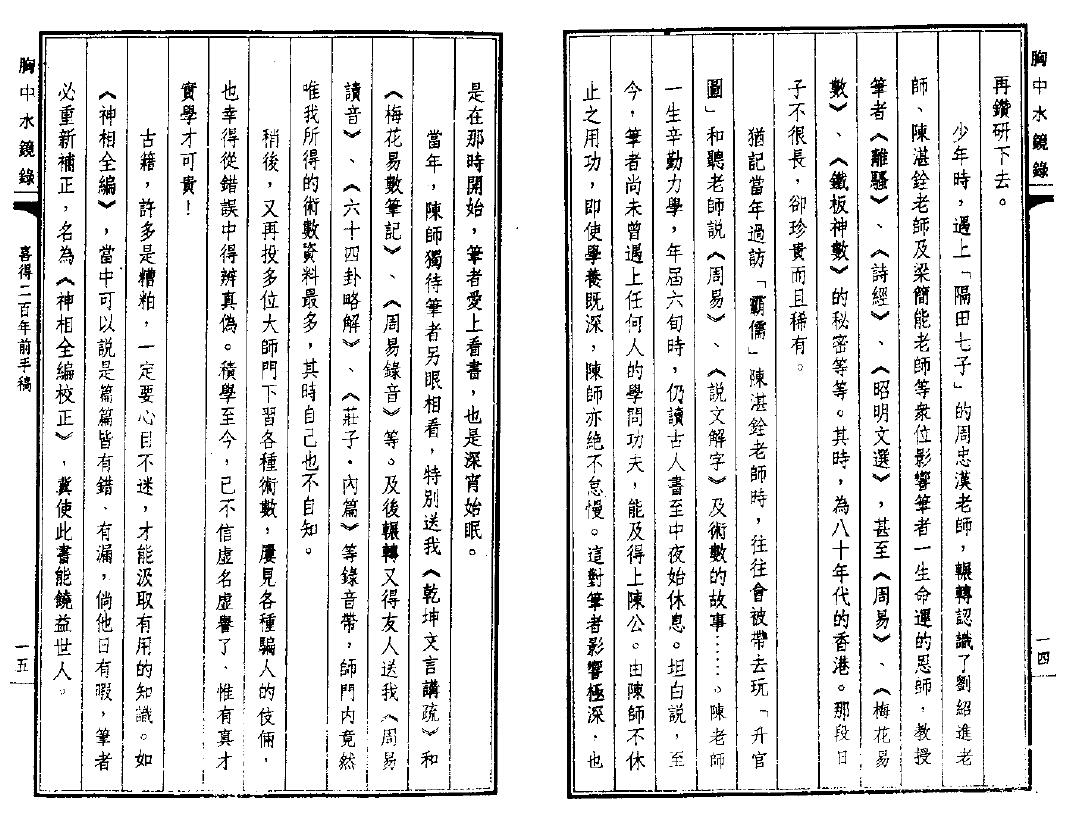 胸中水鏡錄
一四
再鑽研下去。
少年時，遇上「隔田七子」的周忠漢老師，輾轉認識了劉紹進老
師、陳湛銓老師及梁簡能老師等眾位影響筆者一生命運的恩師，教授
筆者《離騷》、《詩經》、《昭明文選》，甚至《周易》、《梅花易
數》、《鐵板神數》的秘密等等。其時，為八十年代的香港。那段日
子不很長，卻珍貴而且稀有。
猶記當年過訪「霸儒」陳湛銓老師時，往往會被帶去玩「升官
圖」和聽老師說《周易》、《說文解字》及術數的故事……。陳老師
一生辛勤力學，年屆六旬時，仍讀古人書至中夜始休息。坦白說，至
今，筆者尚未曾遇上任何人的學問功夫，能及得上陳公。由陳師不休
止之用功，即使學養既深，陳師亦絕不怠慢。這對筆者影響極深，也
是在那時開始，筆者愛上看書，也是深宵始眠。
當年，陳師獨待筆者另眼相看，特別送我《乾坤文言講疏》和
《梅花易數筆記》、《周易錄音》等。及後輾轉又得友人送我《周易
讀音》、《六十四卦略解》、《莊子·內篇》等錄音帶，師門內竟然
唯我所得的術數資料最多，其時自己也不自知。
稍後，又再投多位大師門下習各種術數，屢見各種騙人的伎倆，
也幸得從錯誤中得辨真偽。積學至今，己不信虛名虛譽了、惟有真才
實學才可貴！
古籍，許多是糟粕，一定要心目不迷，才能汲取有用的知識。如
《神相全編》，當中可以說是篇篇皆有錯、有漏，倘他日有暇，筆者
必重新補正，名為《神相全編校正》，冀使此書能饒益世人。
胸中水鏡錄
喜得二百年前手稿
一五